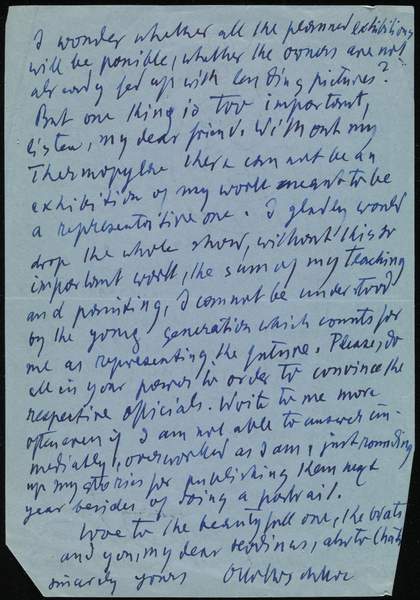 I wonder whether all the planned exhibitions
will be possible, whether the owners are not
already fed up with lending pictures?
But one thing is too important,
listen, my dear friend. Without my
Thermopylae there cannot be an
exhibition of my work meant to be
a representative one. I gladly would
drop the whole show, without this so
important work, the sum of my teaching
and painting, I cannot be understood
by the young generation which counts for
me as representing the future. Please, do
all in your power in order to convince the
respective officials. Write to me more
often even if I am not able to answer im-
mediatly, overworked as I am, just rounding
up my stories for publishing them next
year besides of doing a portrait.
Love to the beautyfull one, the brats
and you, my dear also to
sincerely yours